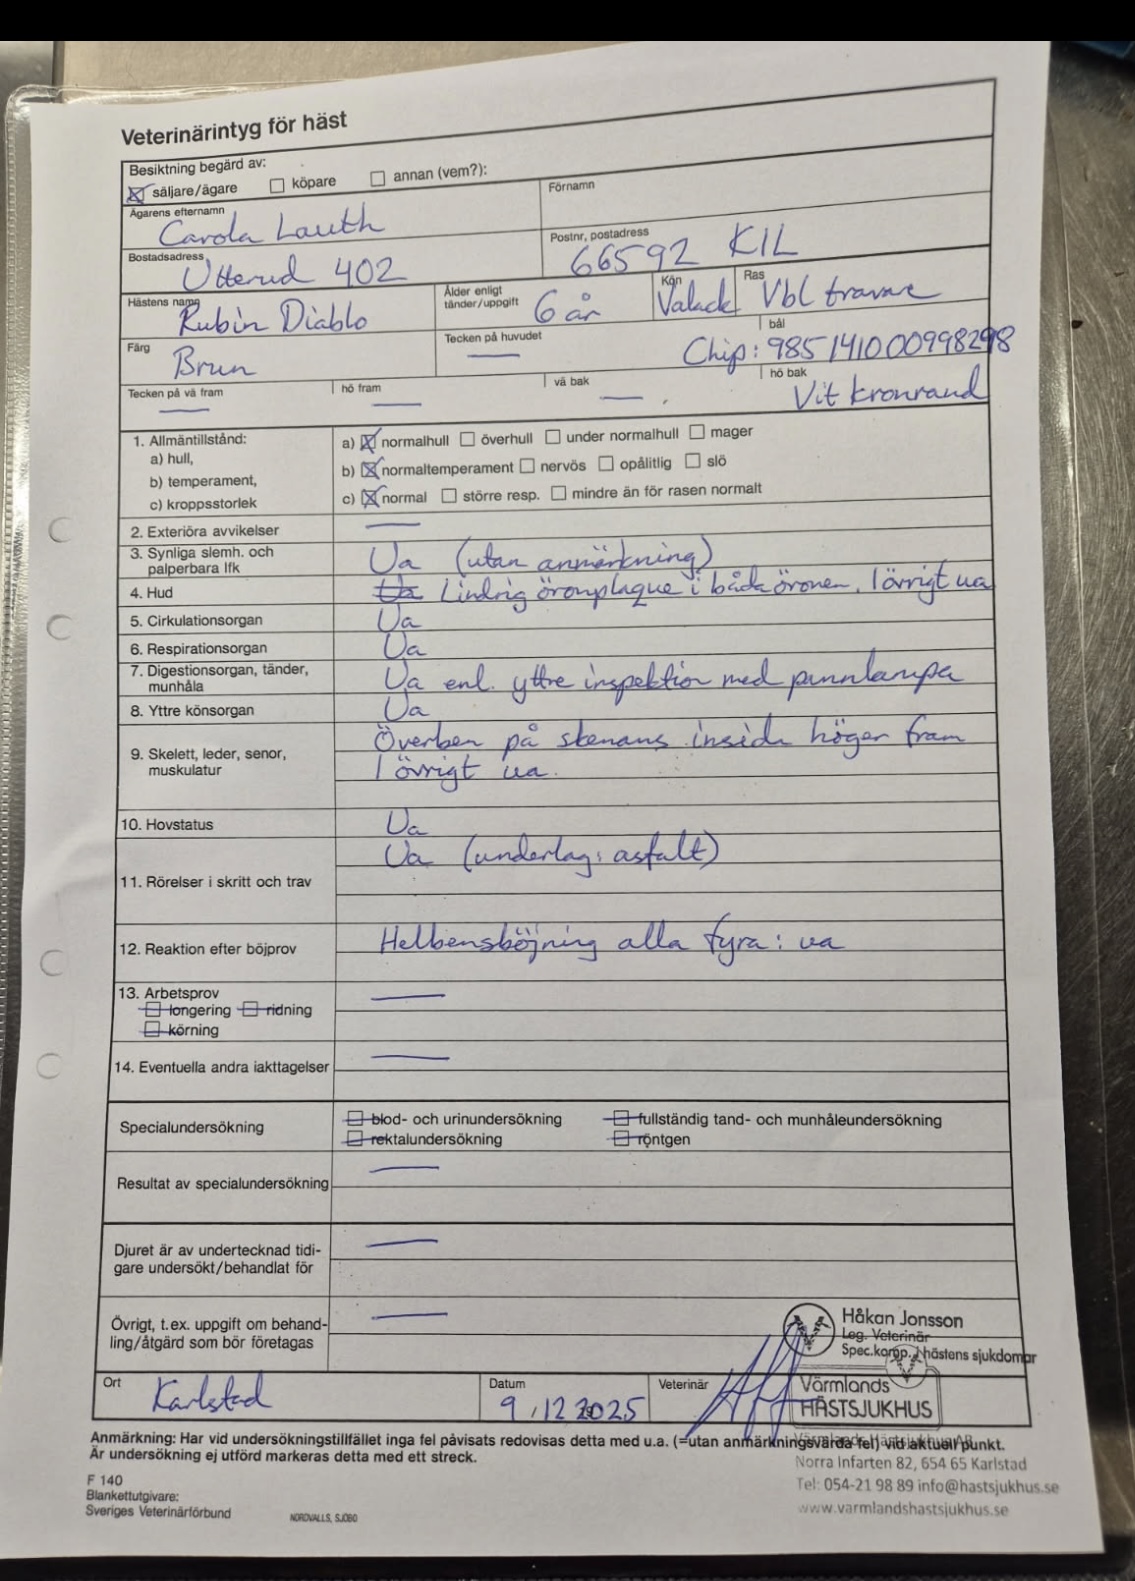 Veterinärintyg för häst
Besiktning begärd av:
säljare/ägare köpare annan (vem?):
Ägarens efternamn Förnamn
Carola Lauth
Bostadsadress Postnr, postadress
Utterud 402 66592 KIL
Hästens namn Ålder enligt tänder/uppgift Kön Ras
Rubin Diablo 6 år Valack Vbl travare
Färg Tecken på huvudet bål
Brun — Chip: 985141000998298
Tecken på vä fram hö fram vä bak hö bak
— — — Vit kronrand
1. Allmäntillstånd:
a) hull, a) normalhull överhull under normalhull mager
b) temperament, b) normaltemperament nervös opålitlig slö
c) kroppsstorlek c) normal större resp. mindre än för rasen normalt
2. Exteriöra avvikelser —
3. Synliga slemh. och
palperbara lfk Ua (utan anmärkning)
4. Hud Ua Lindrig öronplaque i båda öronen. I övrigt ua
5. Cirkulationsorgan Ua
6. Respirationsorgan Ua
7. Digestionsorgan, tänder,
munhåla Ua enl. yttre inspektion med pannlampa
8. Yttre könsorgan Ua
9. Skelett, leder, senor, Överben på skenans insida höger fram
muskulatur I övrigt ua.
10. Hovstatus Ua
11. Rörelser i skritt och trav Ua (underlag: asfalt)
12. Reaktion efter böjprov Helbensböjning alla fyra: ua
13. Arbetsprov —
longering ridning
körning
14. Eventuella andra iakttagelser —
Specialundersökning blod- och urinundersökning fullständig tand- och munhåleundersökning
rektalundersökning röntgen
Resultat av specialundersökning —
Djuret är av undertecknad tidi-
gare undersökt/behandlat för —
Övrigt, t.ex. uppgift om behand-
ling/åtgärd som bör företagas —
Håkan Jonsson
Leg. Veterinär
Spec.komp. hästens sjukdomar
Ort Datum Veterinär
Karlstad 9.12 2025
Värmlands
HÄSTSJUKHUS
Anmärkning: Har vid undersökningstillfället inga fel påvisats redovisas detta med u.a. (=utan anmärkningsvärda fel) vid aktuell punkt.
Är undersökning ej utförd markeras detta med ett streck.
Värmlands Hästsjukhus AB
Norra Infarten 82, 654 65 Karlstad
Tel: 054-21 98 89 info@hastsjukhus.se
www.varmlandshastsjukhus.se
F 140
Blankettutgivare:
Sveriges Veterinärförbund NORDVALLS, SJÖBO